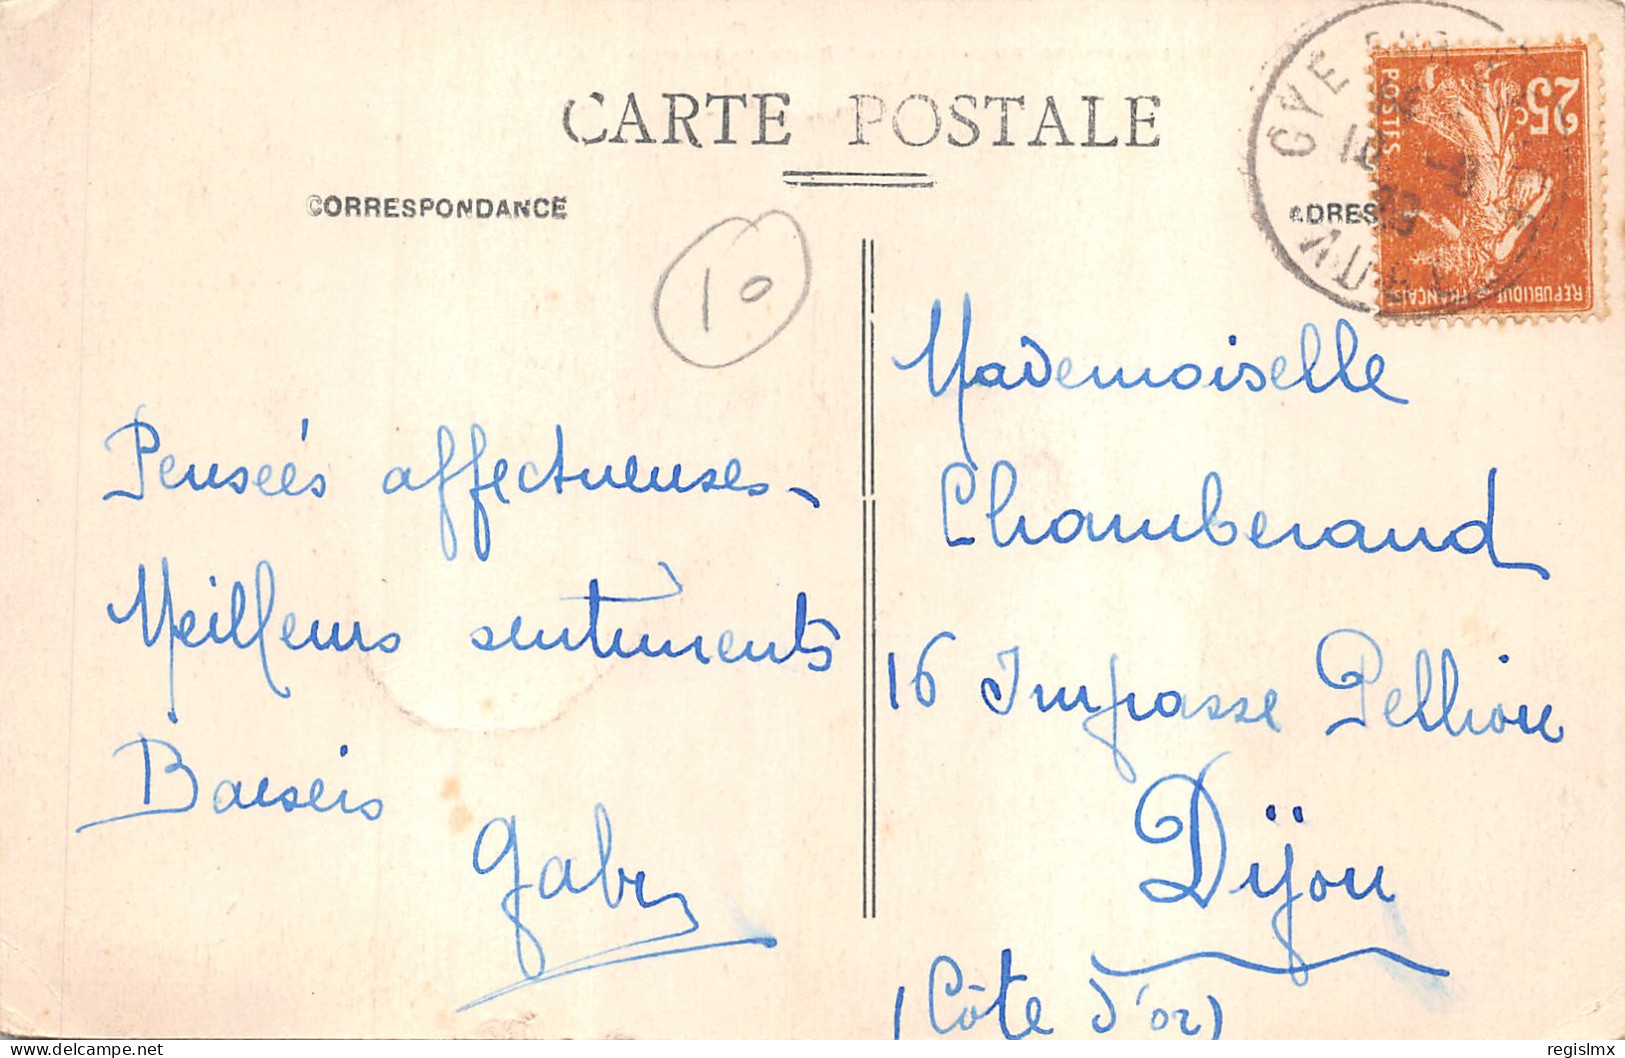 CARTE POSTALE
CORRESPONDANCE
ADRES
10
25c
POSTES
REPUBLIQUE FRANÇAISE
GYE SUR
Pensées affectueuses -
Meilleurs sentiments
Baisers
Gaby
Mademoiselle
Chamberaud
16 Impasse Pellion
Dijon
(Côte d'or)
delcampe.net
regislmx